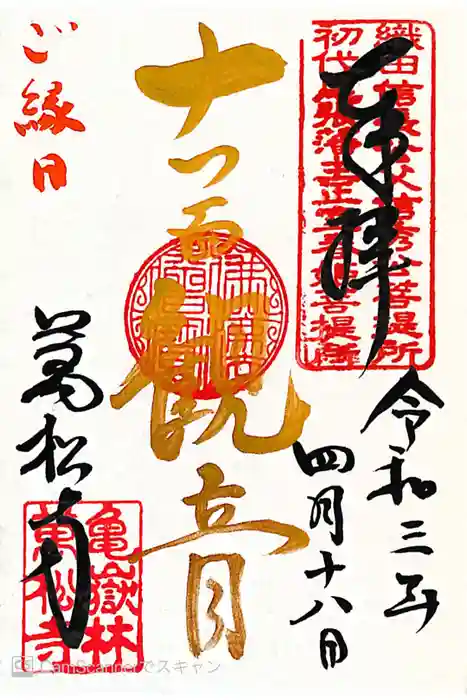 織田信長公父信秀公菩提所
初代尾張藩主正室春姫菩提所
奉拝
令和三年
四月十八日
十一面観音
ご縁日
萬松寺
亀嶽林
萬松寺
CamScannerでスキャン